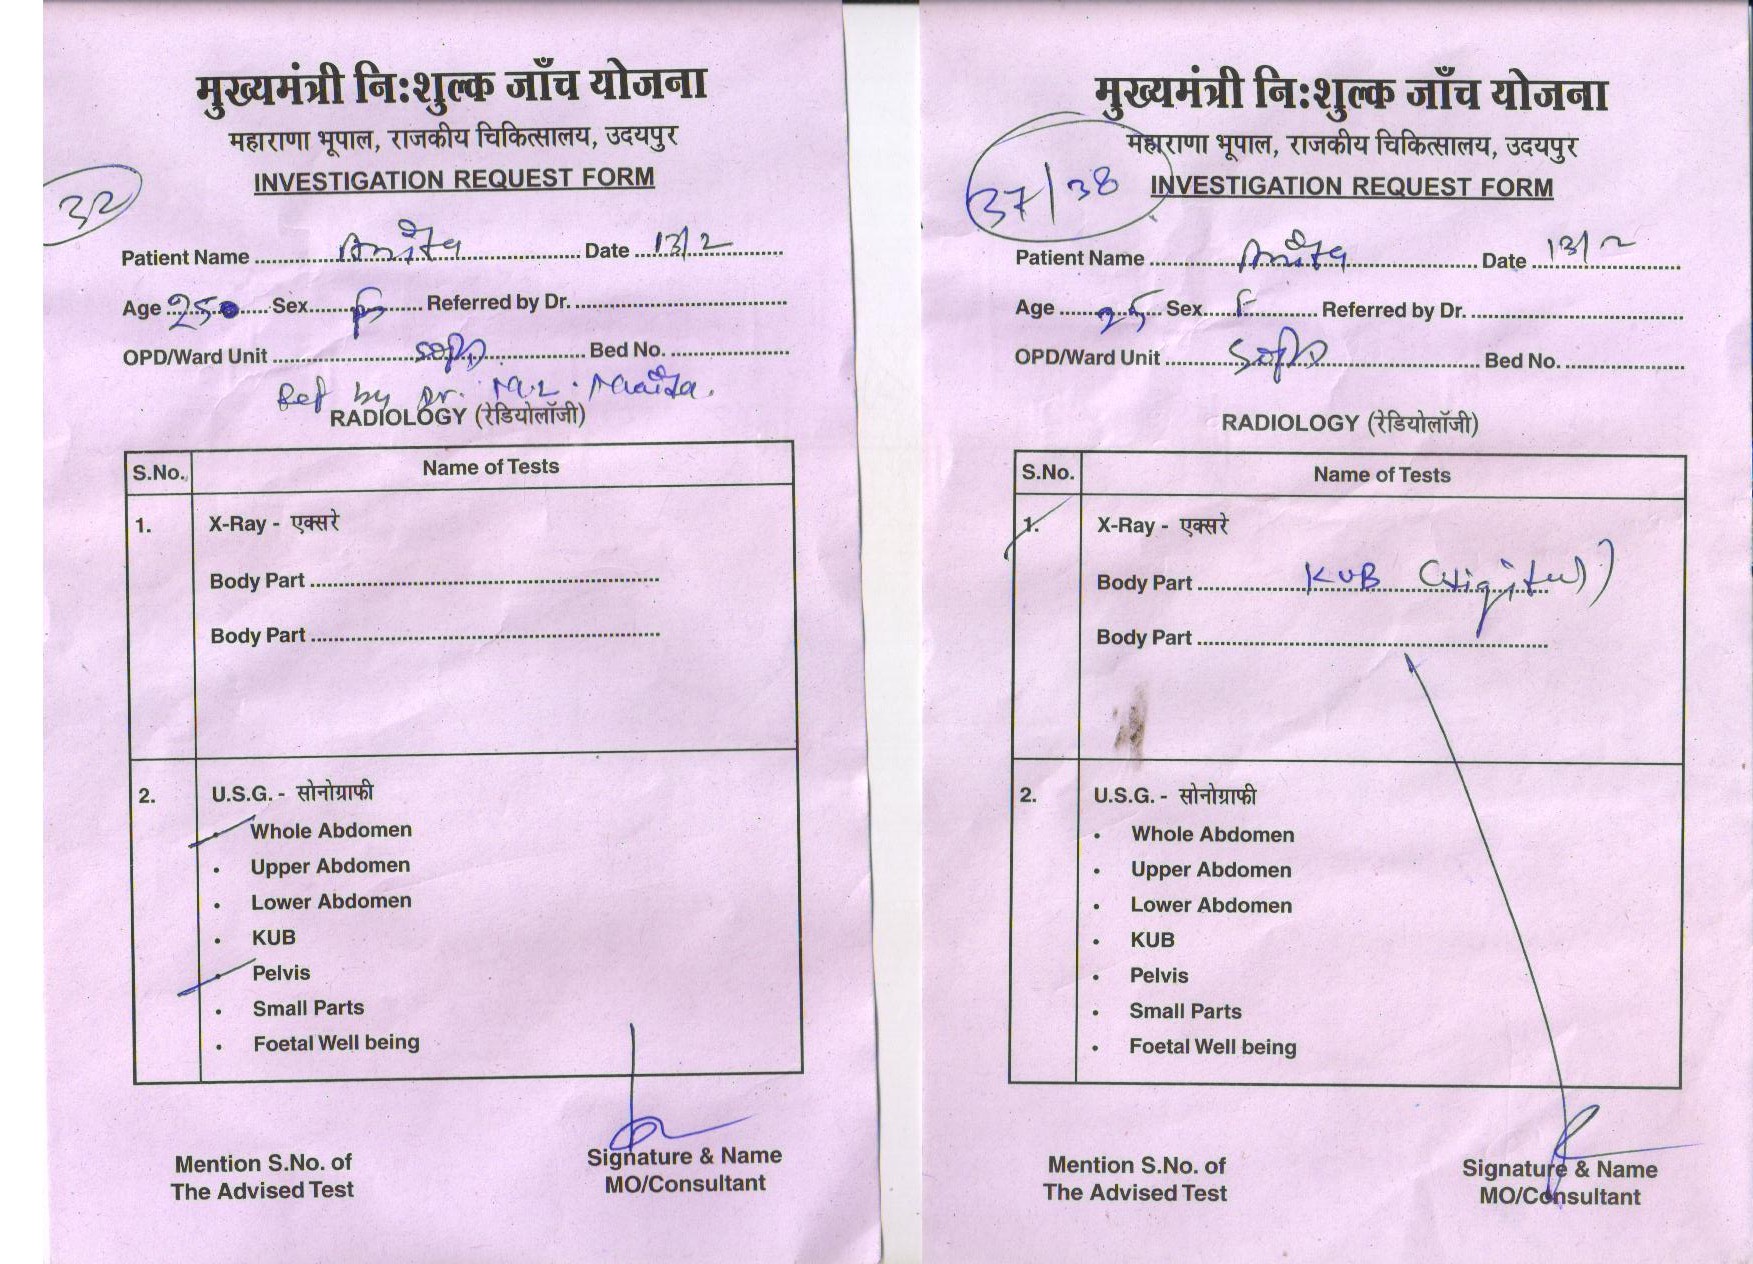 मुख्यमंत्री निःशुल्क जाँच योजना
महाराणा भूपाल, राजकीय चिकित्सालय, उदयपुर
INVESTIGATION REQUEST FORM
32
Patient Name Anita Date 13/2
Age 25 Sex F Referred by Dr.
OPD/Ward Unit SOPD Bed No.
Ref by Dr. M.L.
RADIOLOGY (रेडियोलॉजी)
S.No. Name of Tests
1. X-Ray - एक्सरे
Body Part
Body Part
2. U.S.G. - सोनोग्राफी
• Whole Abdomen
• Upper Abdomen
• Lower Abdomen
• KUB
• Pelvis
• Small Parts
• Foetal Well being
Mention S.No. of
The Advised Test
Signature & Name
MO/Consultant
मुख्यमंत्री निःशुल्क जाँच योजना
महाराणा भूपाल, राजकीय चिकित्सालय, उदयपुर
INVESTIGATION REQUEST FORM
37/38
Patient Name Anita Date 13/2
Age 25 Sex F Referred by Dr.
OPD/Ward Unit SOPD Bed No.
RADIOLOGY (रेडियोलॉजी)
S.No. Name of Tests
1. X-Ray - एक्सरे
Body Part KUB (Digital)
Body Part
2. U.S.G. - सोनोग्राफी
• Whole Abdomen
• Upper Abdomen
• Lower Abdomen
• KUB
• Pelvis
• Small Parts
• Foetal Well being
Mention S.No. of
The Advised Test
Signature & Name
MO/Consultant